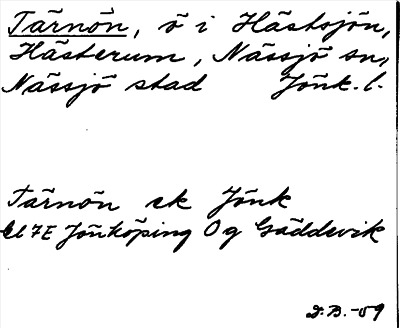 Tärnön, ö i Hästsjön,
Hästerum, Nässjö sn,
Nässjö stad Jönk. l.
Tärnön ek Jönk
bl 7E Jönköping Og Gäddevik
D.B.-59